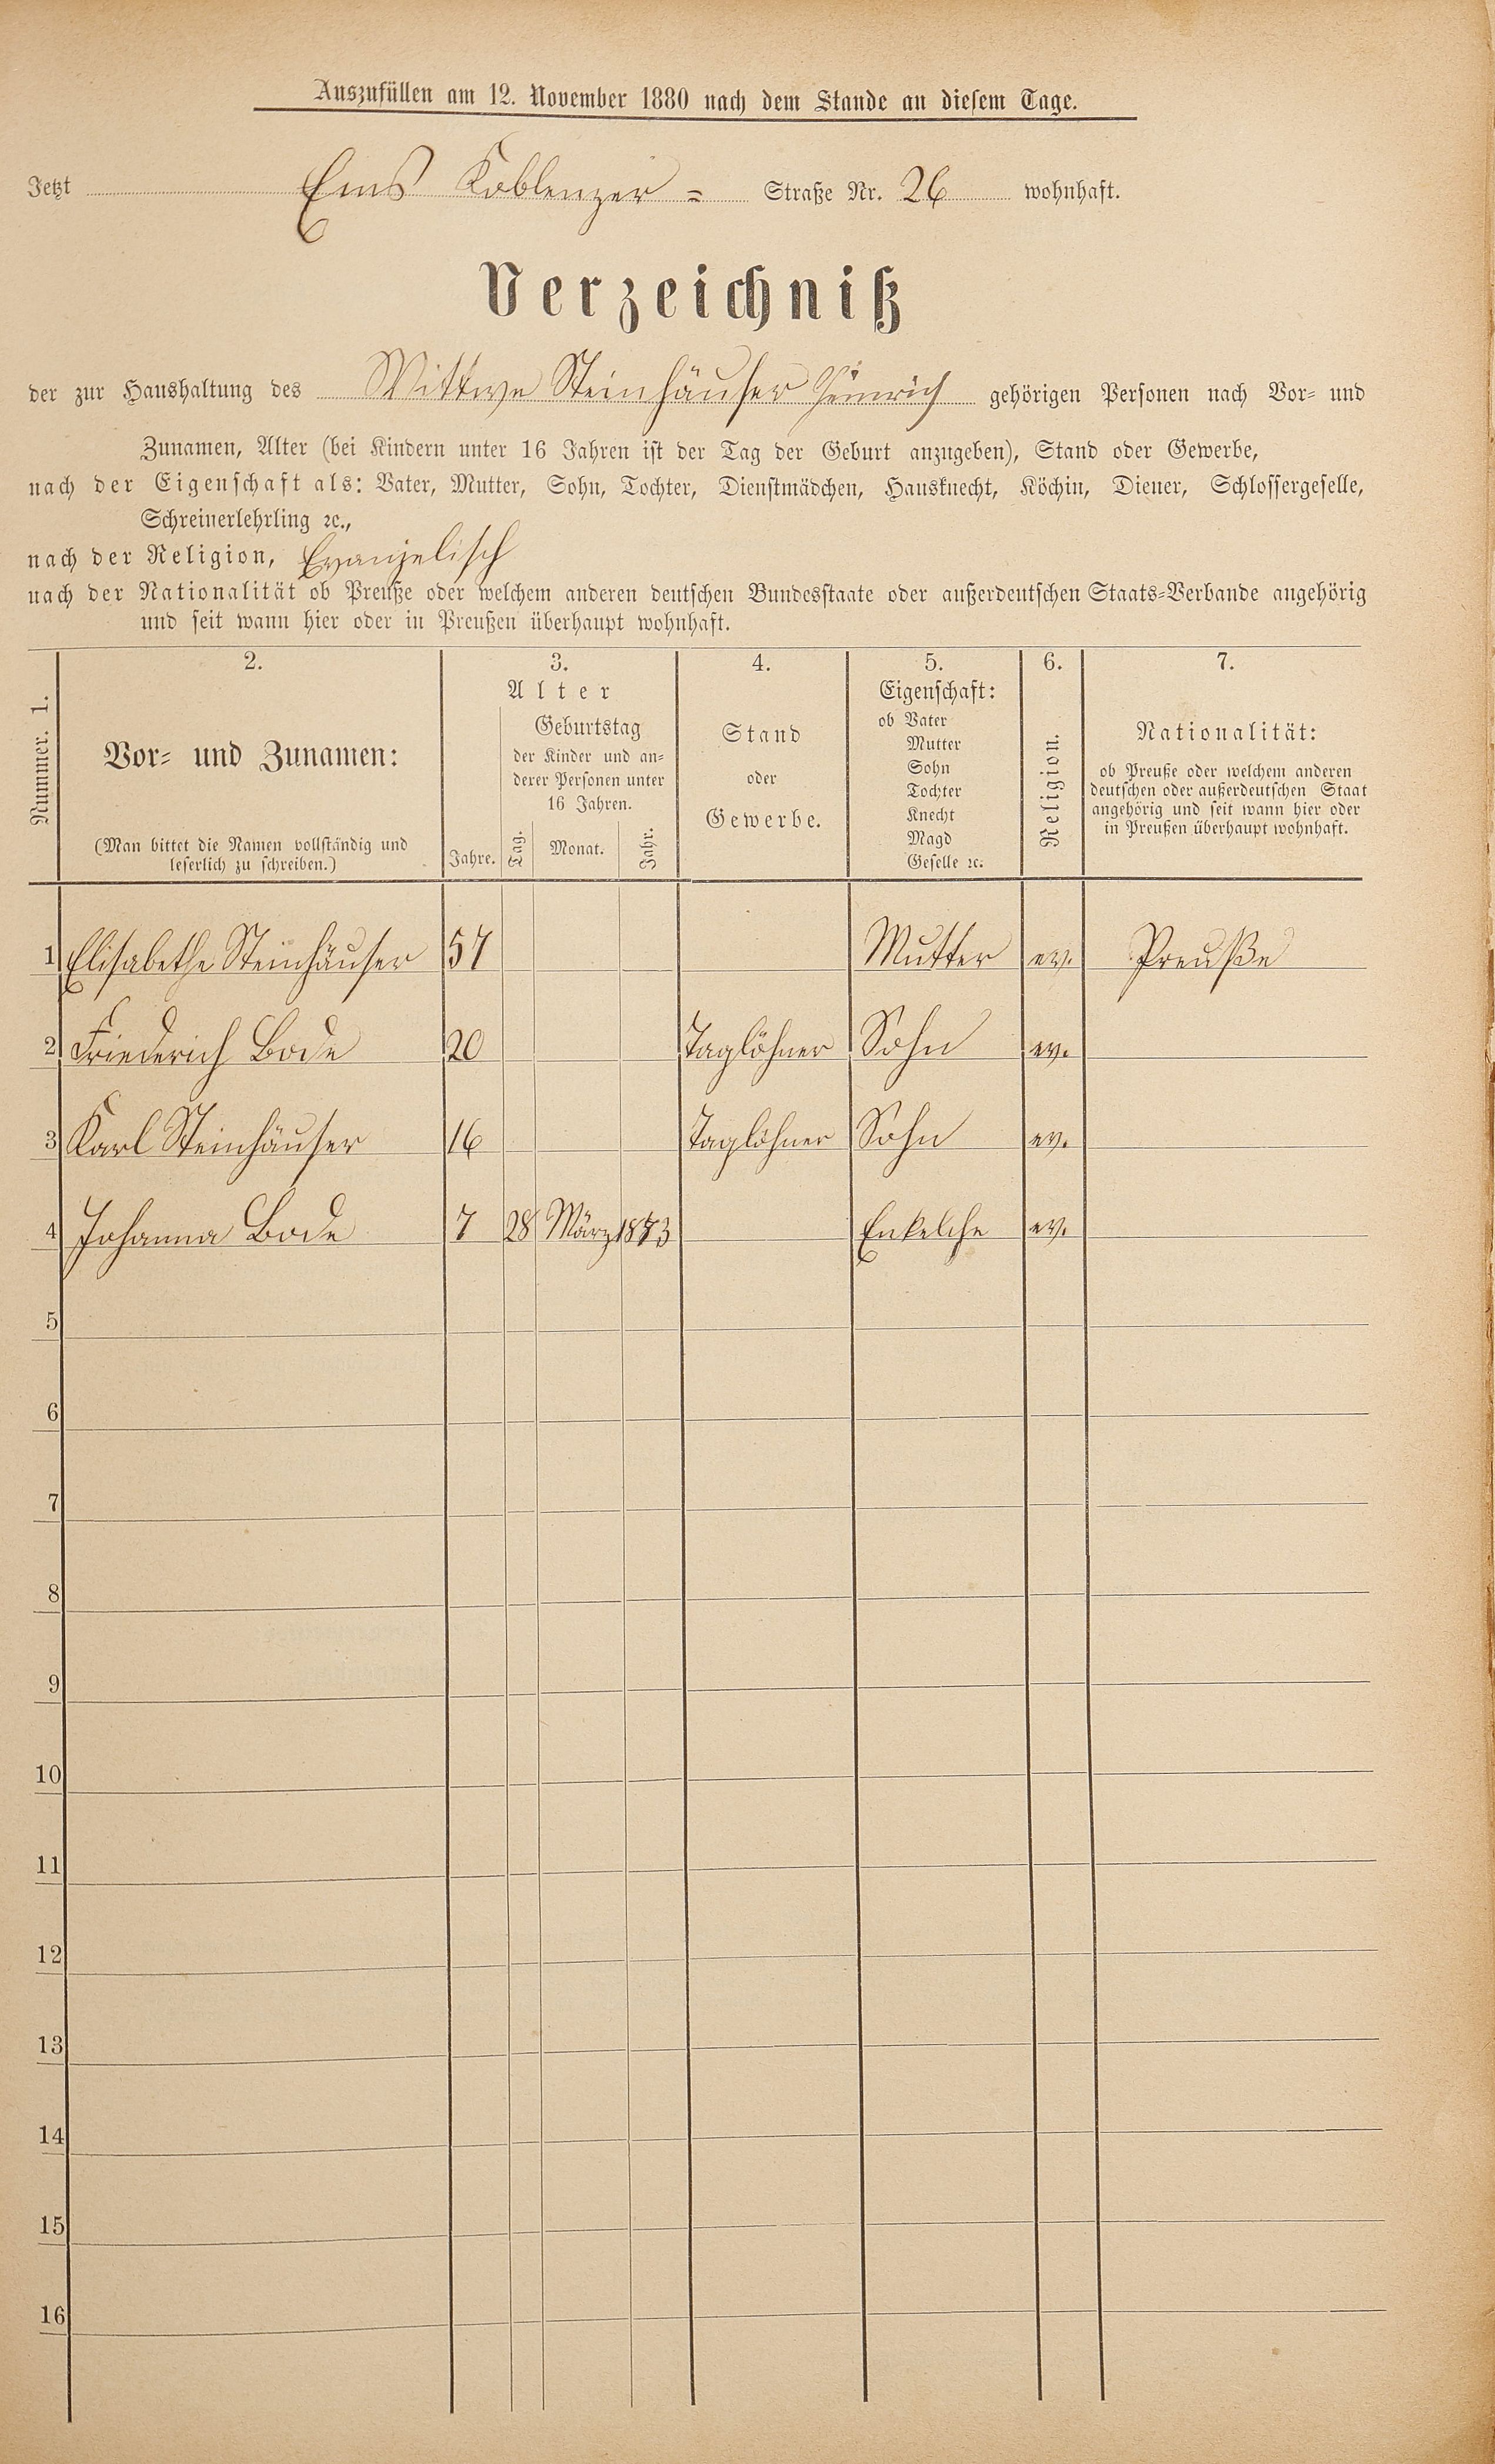 Auszufüllen am 12. November 1880 nach dem Stande an diesem Tage.
Jetzt Ems Koblenzer = Straße Nr. 26 wohnhaft.
Verzeichniß
der zur Haushaltung des Wittwe Steinhäuser Heinrich gehörigen Personen nach Vor- und
Zunamen, Alter (bei Kindern unter 16 Jahren ist der Tag der Geburt anzugeben), Stand oder Gewerbe,
nach der Eigenschaft als: Vater, Mutter, Sohn, Tochter, Dienstmädchen, Hausknecht, Köchin, Diener, Schlossergeselle,
Schreinerlehrling ꝛc.,
nach der Religion, Evangelisch
nach der Nationalität ob Preuße oder welchem anderen deutschen Bundesstaate oder außerdeutschen Staats-Verbande angehörig
und seit wann hier oder in Preußen überhaupt wohnhaft.
Nummer. 1.
2.
Vor- und Zunamen:
(Man bittet die Namen vollständig und
leserlich zu schreiben.)
3.
Alter
Jahre.
Geburtstag
der Kinder und an-
derer Personen unter
16 Jahren.
Tag.
Monat.
Jahr.
4.
Stand
oder
Gewerbe.
5.
Eigenschaft:
ob Vater
Mutter
Sohn
Tochter
Knecht
Magd
Geselle ꝛc.
6.
Religion.
7.
Nationalität:
ob Preuße oder welchem anderen
deutschen oder außerdeutschen Staat
angehörig und seit wann hier oder
in Preußen überhaupt wohnhaft.
1 Elisabethe Steinhäuser 57 Mutter ev. Preuße
2 Friederich Bode 20 Taglöhner Sohn ev.
3 Karl Steinhäuser 16 Taglöhner Sohn ev.
4 Johanna Bode 7 28 März 1873 Enkelche ev.
5
6
7
8
9
10
11
12
13
14
15
16